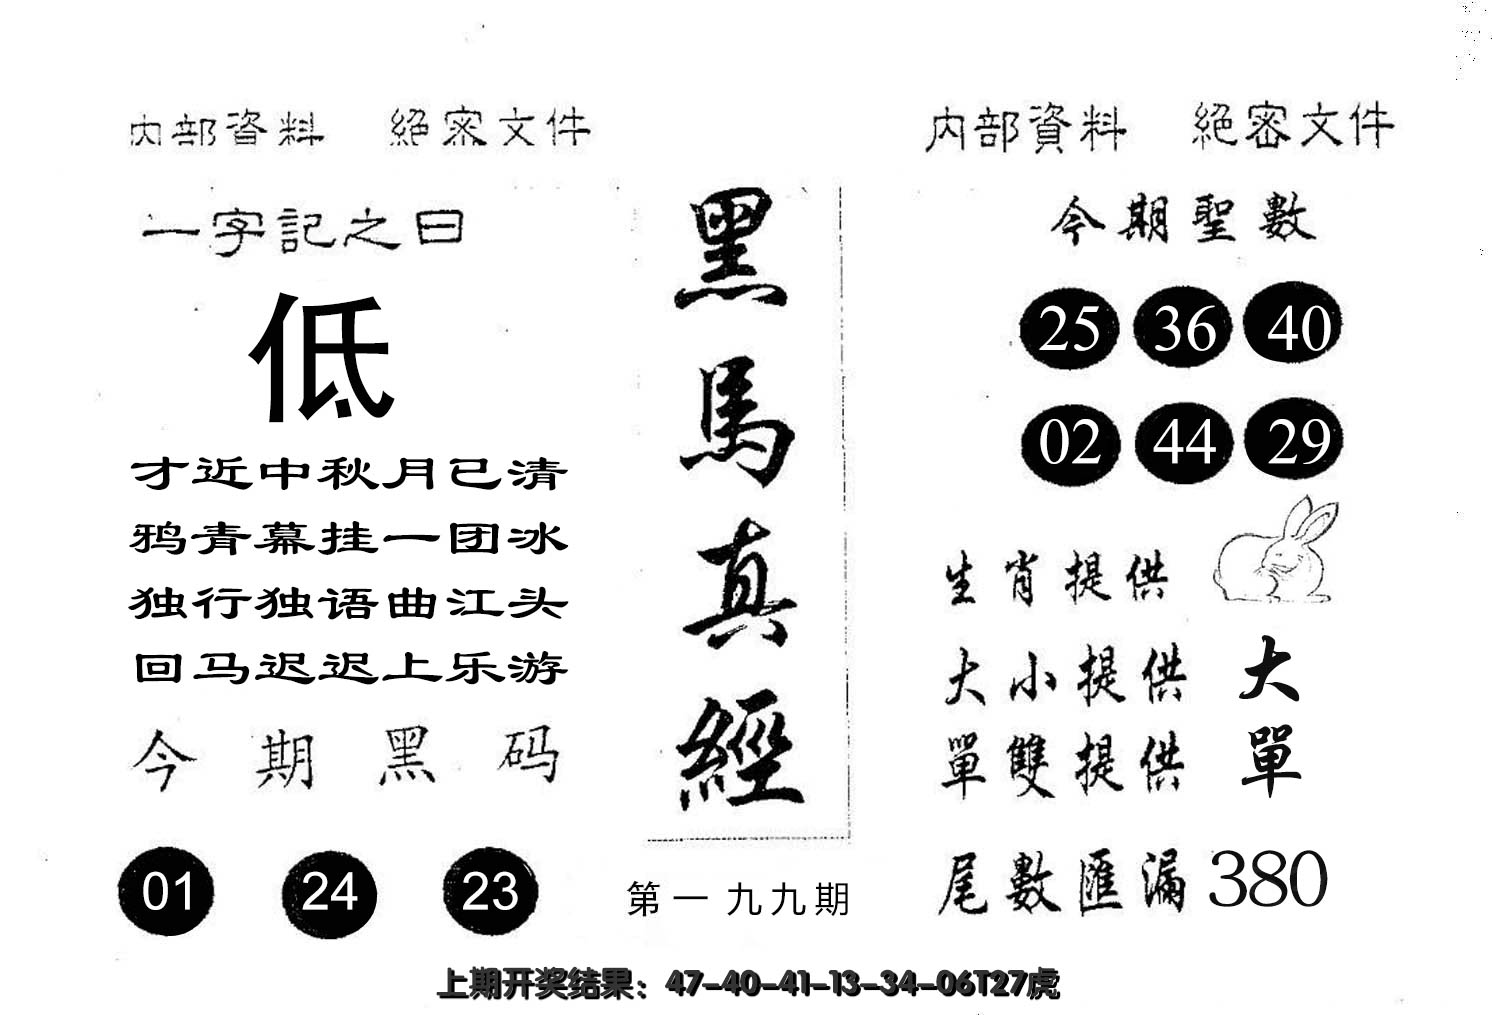 内部資料 絕密文件
一字記之曰
低
才近中秋月已清
鸦青幕挂一团冰
独行独语曲江头
回马迟迟上乐游
今期黑码
01 24 23
黑馬真經
第一九九期
内部資料 絕密文件
今期聖數
25 36 40
02 44 29
生肖提供
大小提供 大
單雙提供 單
尾數匯漏 380
上期开奖结果：47-40-41-13-34-06T27虎